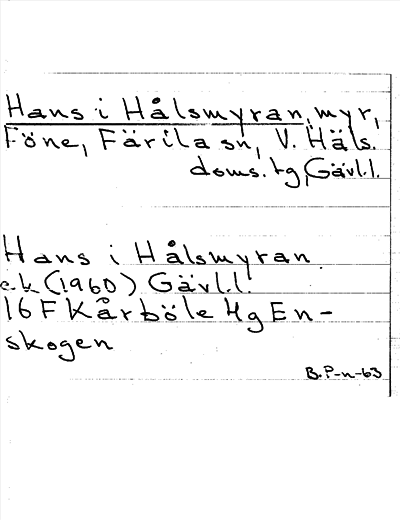 Hans i Hålsmyran, myr,
Föne, Färila sn, V. Häls.
doms. tg, Gävl.l.
Hans i Hålsmyran
e.k (1960) Gävl.l.
16 F Kårböle Hg En-
skogen
B.P-n-63